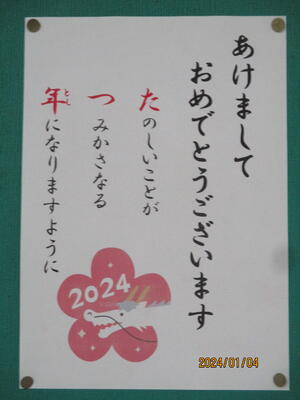 あけまして
おめでとうございます
たのしいことが
つみかさなる
年になりますように
とし
2024
2024/01/04